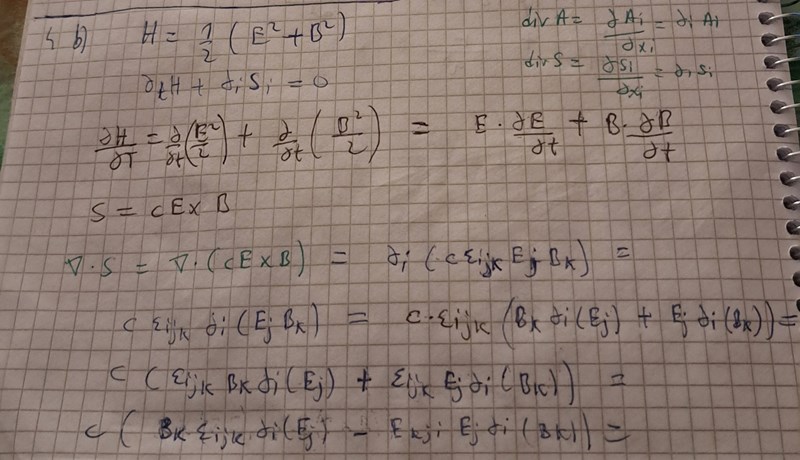 4 g) H = 1/2 (E² + B²)
div A = ∂Ai/∂xi = ∂i Ai
div S = ∂Si/∂xi = ∂i Si
∂tH + ∂iSi = 0
∂H/∂t = ∂/∂t (E²/2) + ∂/∂t (B²/2) = E · ∂E/∂t + B · ∂B/∂t
S = cE × B
∇·S = ∇·(cE×B) = ∂i (c εijk Ej Bk) =
c εijk ∂i (Ej Bk) = c·εijk (Bk ∂i(Ej) + Ej ∂i(Bk)) =
c (εijk Bk ∂i(Ej) + εijk Ej ∂i(Bk)) =
c (Bk εijk ∂i(Ej) − εkji Ej ∂i(Bk)) =